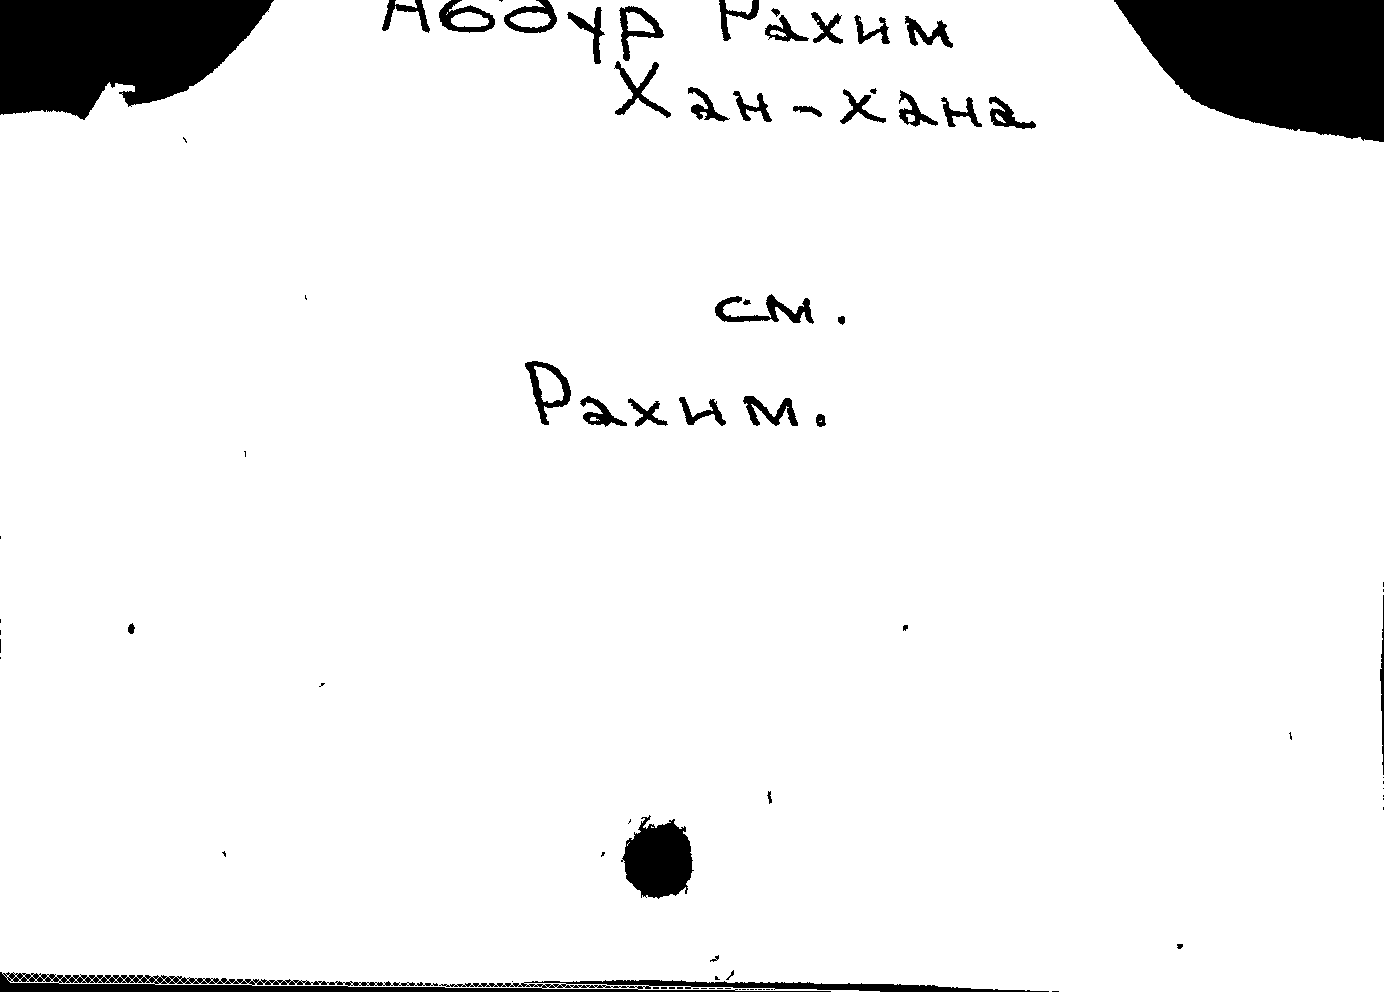 Абдур Рахим
Хан-хана
см.
Рахим.